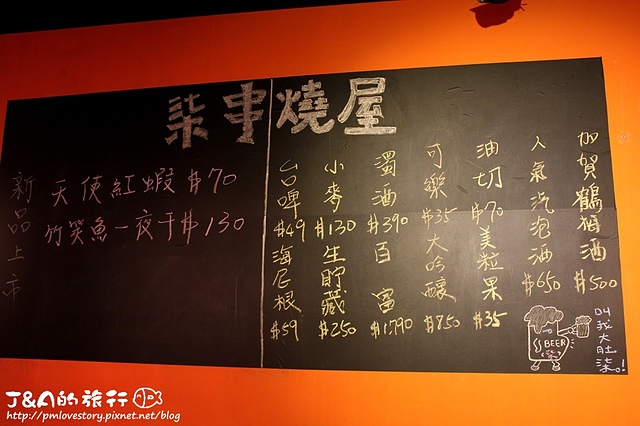 柒串燒屋
新品上市
天使紅蝦 $70
竹筴魚一夜干 $130
加賀鶴梅酒 $500
人氣汽泡酒 $650
油切 $70
美粒果 $35
可樂 $35
大吟釀 $750
濁酒 $390
百富 $1790
小麥 $130
生貯藏 $250
台啤 $49
海尼根 $59
BEER
叫我大肚柒。!
J&A的旅行
http://pmlovestory.pixnet.net/blog